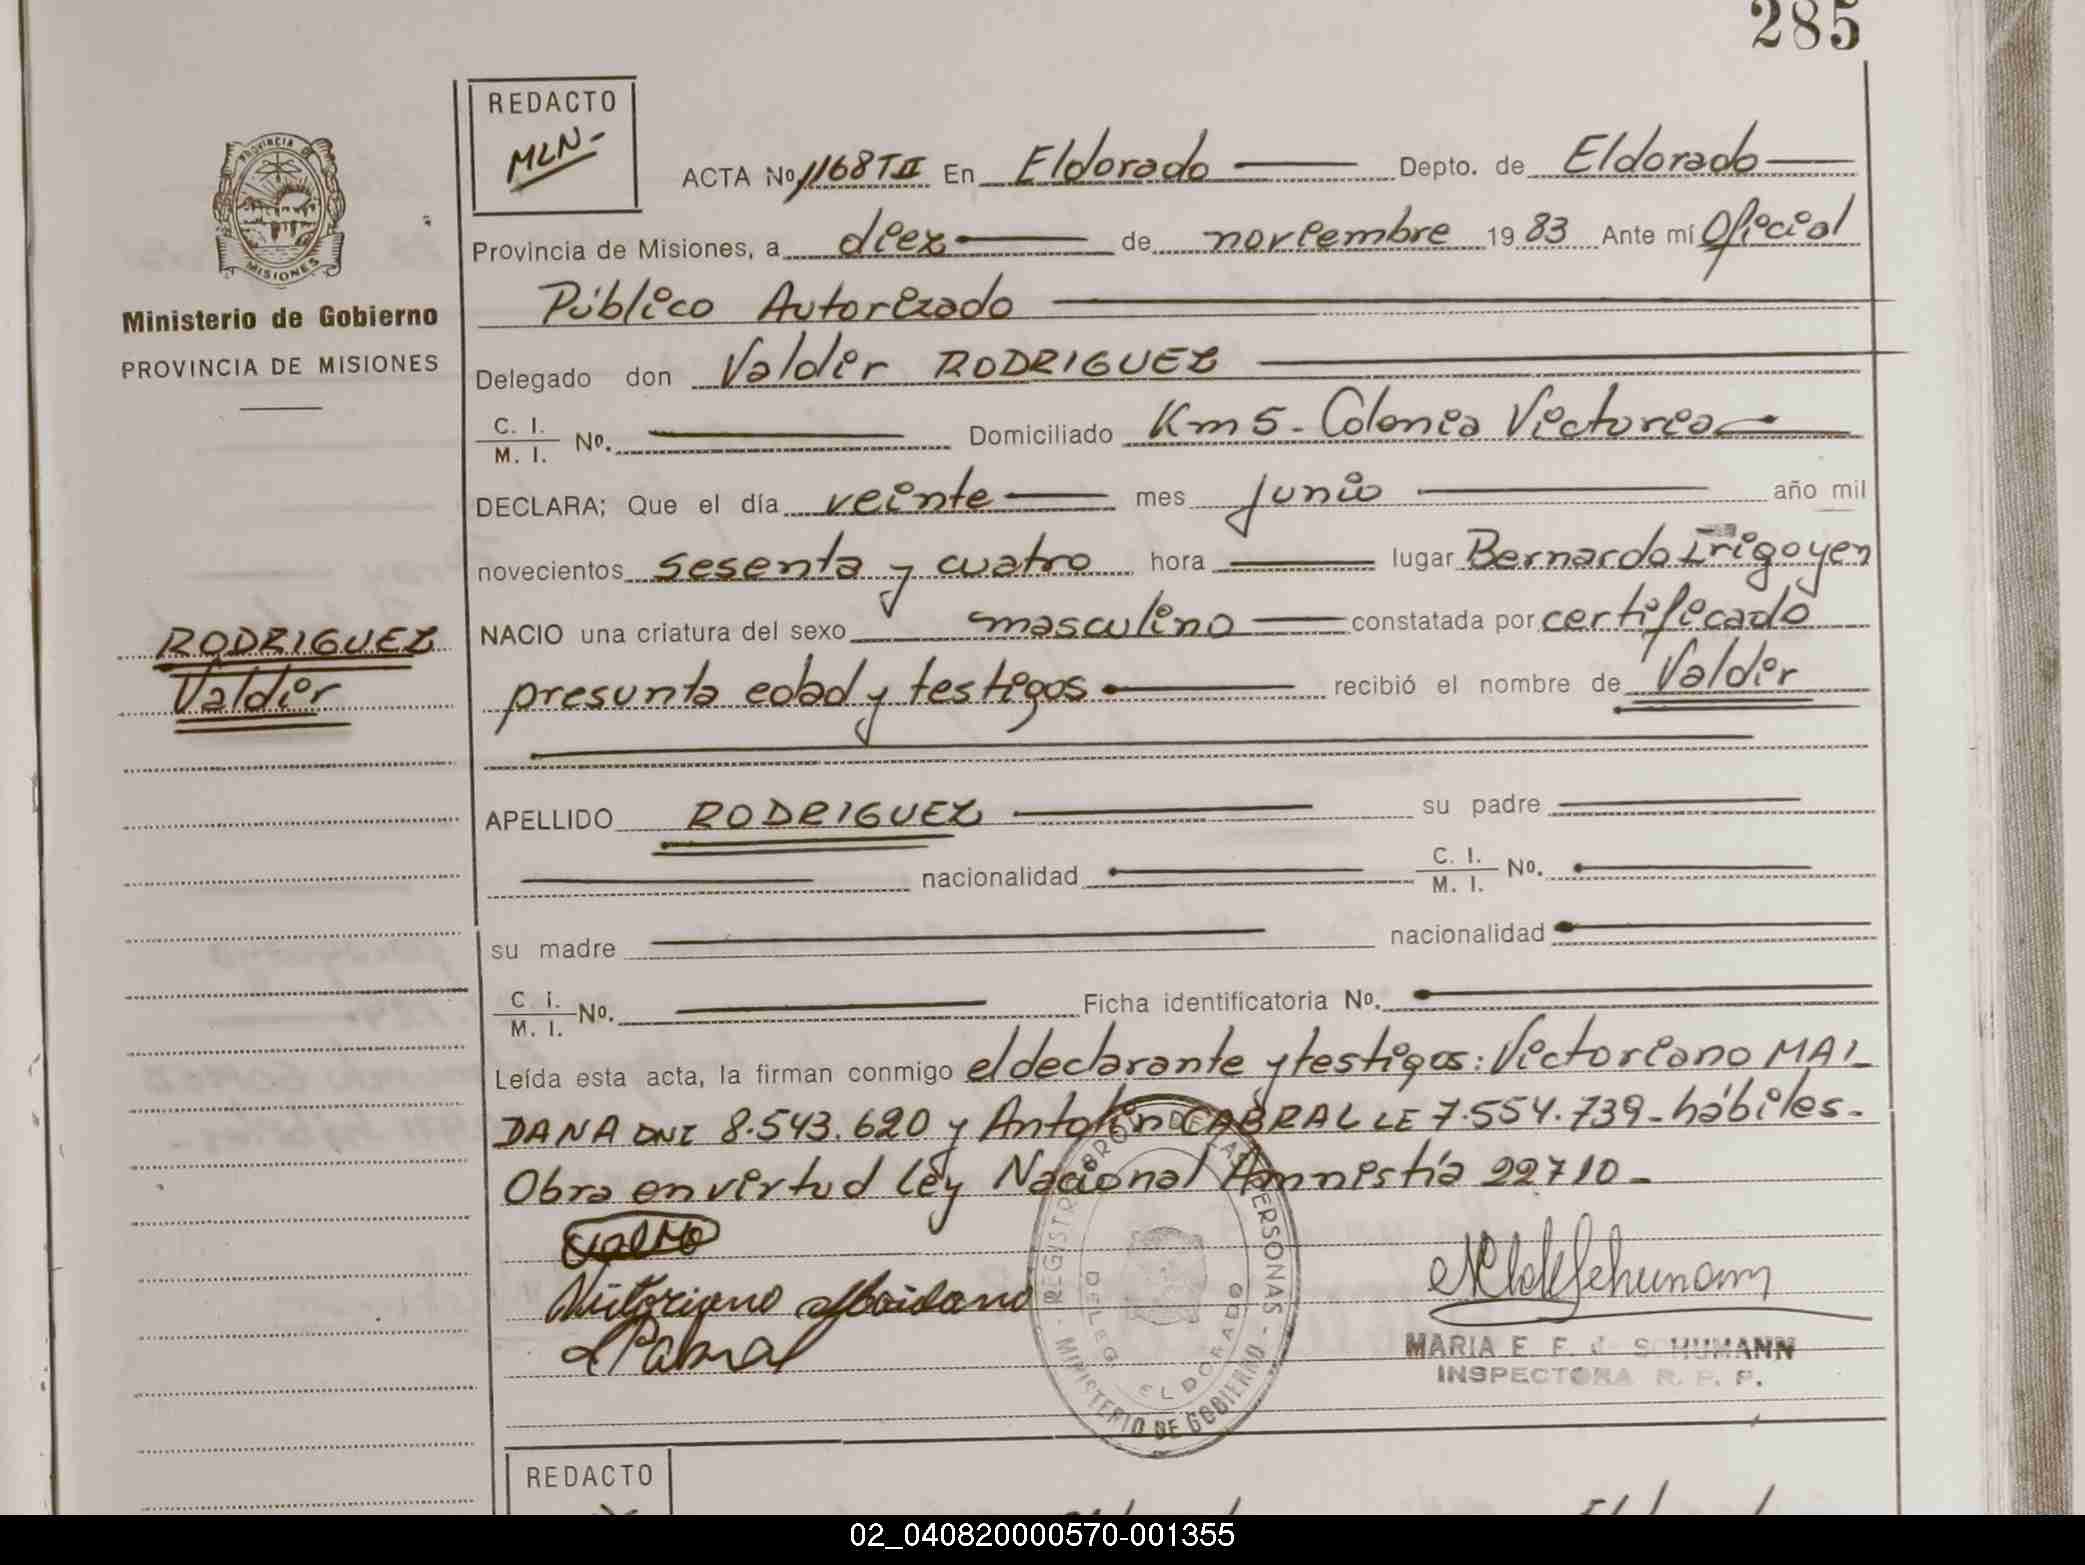 285
REDACTO
MLN-
ACTA Nº 1168 T II En Eldorado Depto. de Eldorado
Provincia de Misiones, a diez de noviembre 1983 Ante mí Oficial
Público Autorizado
Delegado don Valdir RODRIGUEZ
C. I. / M. I. Nº. Domiciliado Km 5 - Colonia Victoria
DECLARA; Que el día veinte mes junio año mil
novecientos sesenta y cuatro hora lugar Bernardo Irigoyen
NACIO una criatura del sexo masculino constatada por certificado
presunta edad y testigos recibió el nombre de Valdir
APELLIDO RODRIGUEZ su padre
nacionalidad C. I. / M. I. Nº.
su madre nacionalidad
C. I. / M. I. Nº. Ficha identificatoria Nº.
Leída esta acta, la firman conmigo el declarante y testigos: Victoriano MAI_
DANA DNI 8.543.620 y Antolín CABRAL LE 7.554.739 - hábiles -
Obra en virtud ley Nacional Amnistía 22710 -
PROVINCIA DE
MISIONES
Ministerio de Gobierno
PROVINCIA DE MISIONES
RODRIGUEZ
Valdir
Victoriano Maidana
Cabral
REGISTRO DE LAS PERSONAS
DELEG. ELDORADO
MINISTERIO DE GOBIERNO
MARIA E. F. d. SCHUMANN
INSPECTORA R. P. P.
REDACTO
02_040820000570-001355